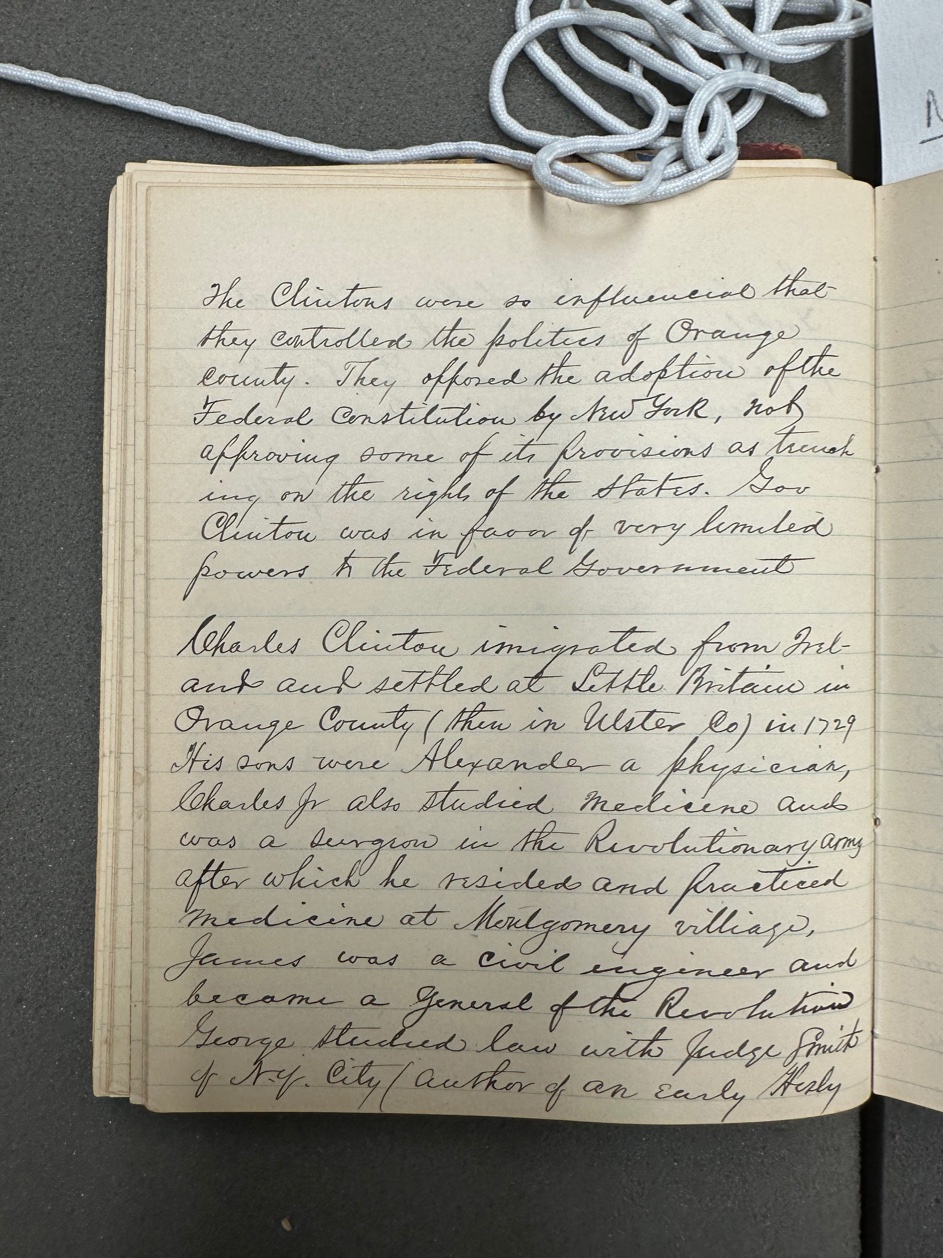 The Clintons were so influencial that
they controlled the politics of Orange
county. They opposed the adoption of the
Federal Constitution by New York, not
approving some of its provisions as trench
ing on the rights of the States. Gov
Clinton was in favor of very limited
powers to the Federal Government
Charles Clinton imigrated from Irel-
and and settled at Little Britain in
Orange County (then in Ulster Co) in 1729
His sons were Alexander a physician,
Charles Jr also studied medicine and
was a surgeon in the Revolutionary army
after which he resided and practiced
medicine at Montgomery villiage,
James was a civil engineer and
became a General of the Revolution
George studied law with Judge Smith
of N.Y. City (author of an Early Histy